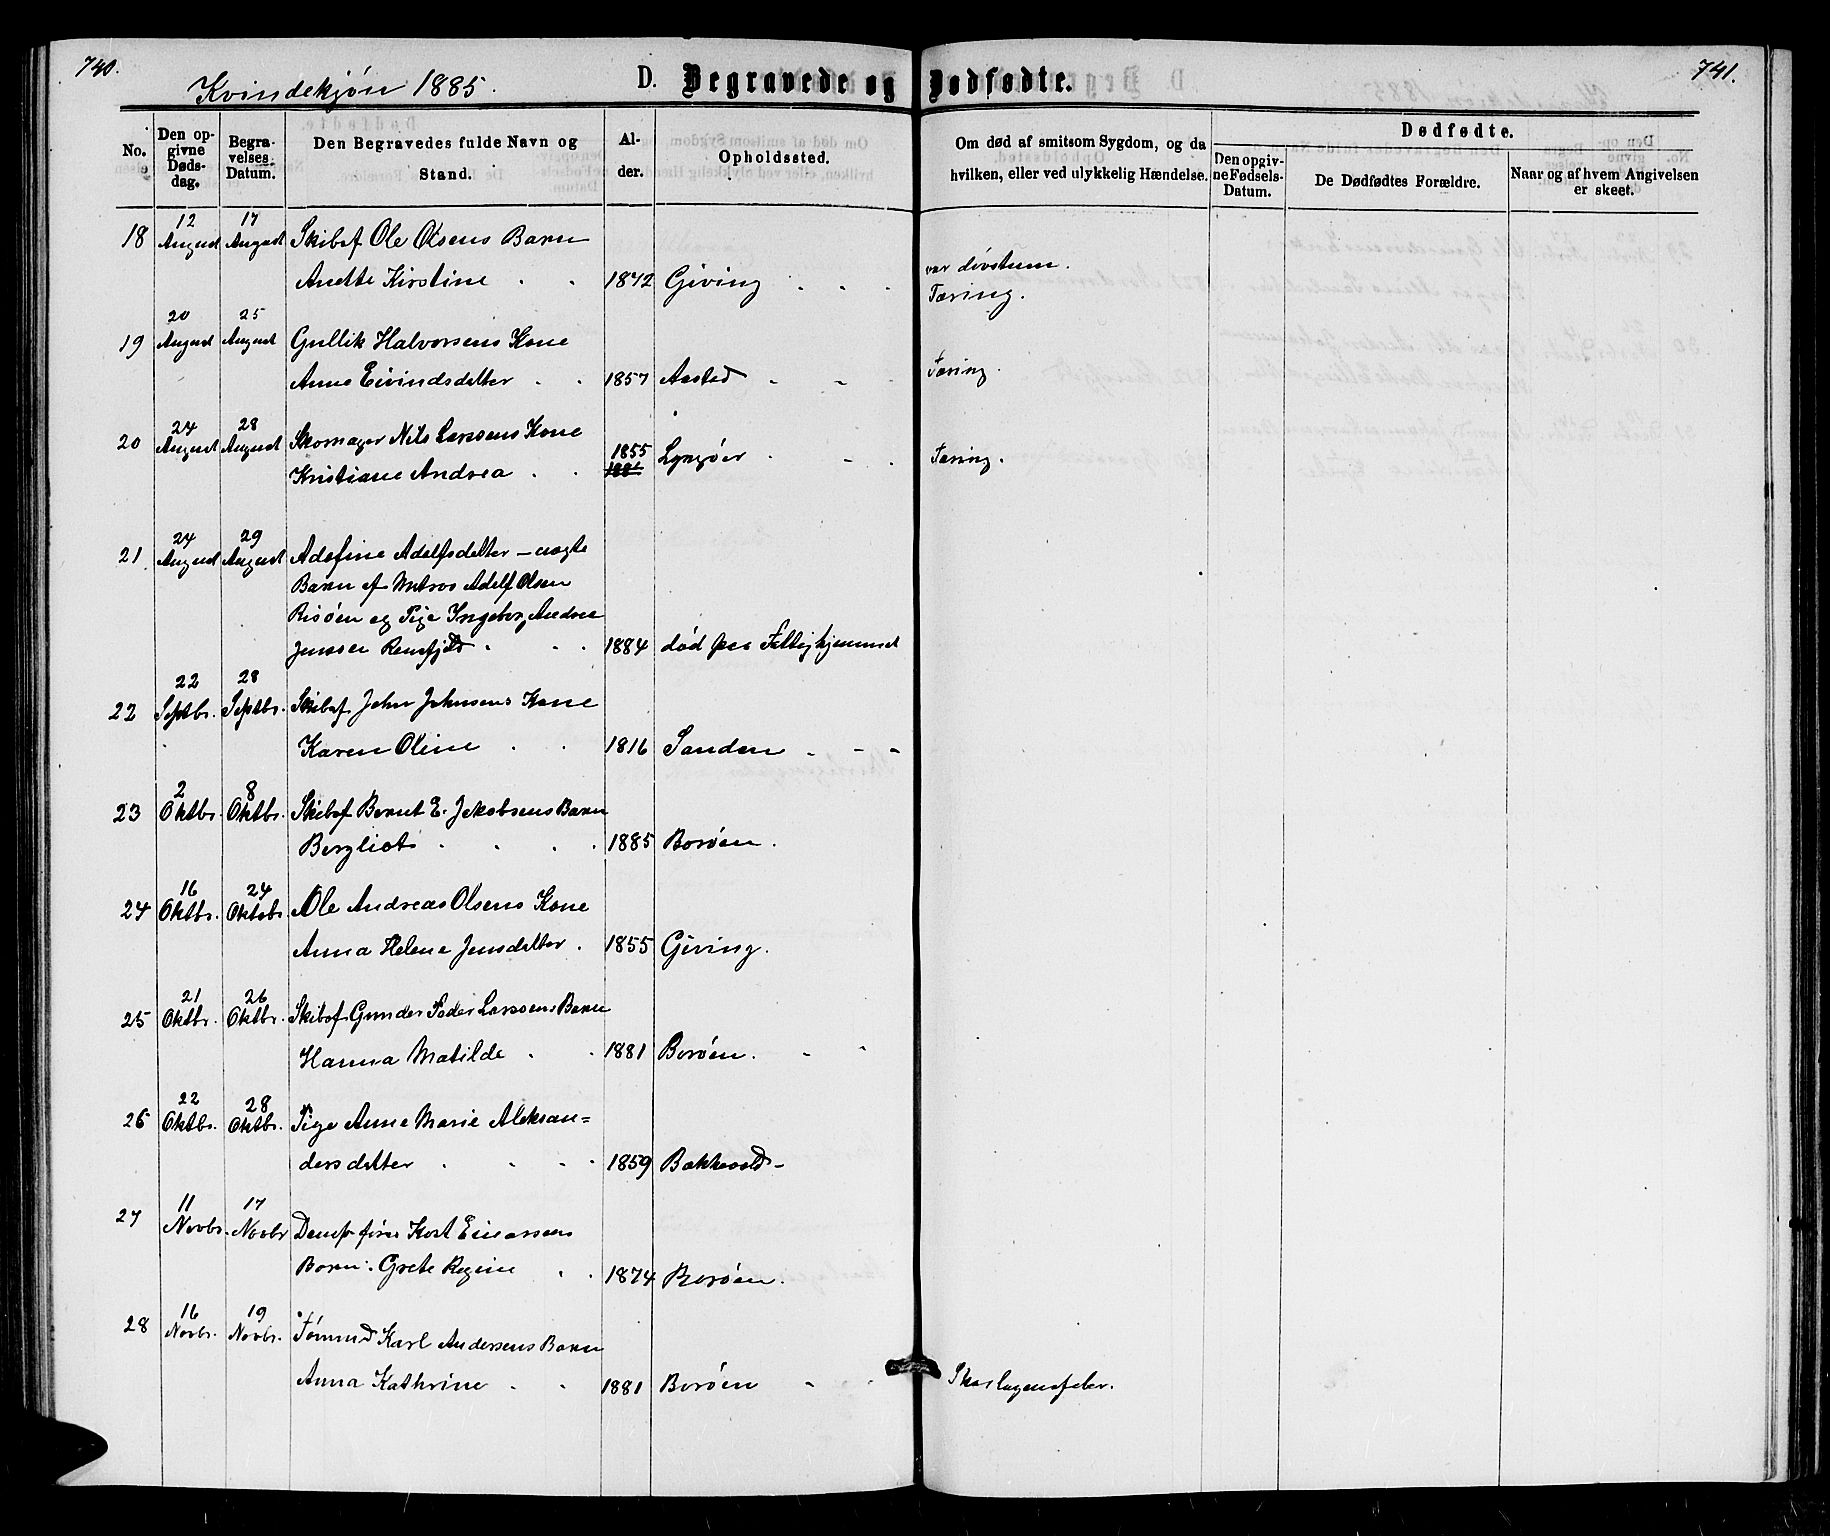 740.
741.
Kvindekjön 1885.
D. Begravede og Dødfødte.
No.
Den opgivne Dødsdag.
Begravelses Datum.
Den Begravedes fulde Navn og Stand.
Alder.
Opholdssted.
Om død af smitsom Sygdom, og da hvilken, eller ved ulykkelig Hændelse.
Dødfødte.
Den opgivne Fødsels-Datum.
De Dødfødtes Forældre.
Naar og af hvem Angivelsen er skeet.
18 12 August 17 August Skibsf Ole Olsens Barn
Anette Kirstine 1872 Giving var døvstum.
Tæring.
19 20 August 25 August Gullik Halvorsens Kone
Anne Eivindsdatter 1857 Aasted Tæring.
20 24 August 28 August Skomager Nils Larsens Kone
Kristiane Andrea 1855 Lyngöer Tæring.
21. 24 August 29 August Adofine Adolfsdatter – uægte
Barn af Matros Adolf Olsen
Risöen og Pige Ingeborg Andrea
Jensen 1884 död paa Fattighjemmet
22 22 Septbr. 28 Septbr. Skibsf John Johnsens Kone
Karen Oline 1816 Sanden
23 2 Oktbr. 8 Oktbr. Skibsf Bernt E. Jakobsens Barn
Bergliot 1885 Boröen.
24 16 Oktbr. 24 Oktobr Ole Andreas Olsens Kone
Anna Helene Jensdatter. 1855 Giving.
25 21 Oktbr. 26 Oktbr. Skibsf Gunder Peder Larsens Barn
Hanna Matilde 1881 Boröen.
26 22 Oktbr. 28 Oktbr. Pige Anne Marie Aleksan=
dersdatter 1859 Bakkevold
27 11 Novbr. 17 Novbr Dampförer Kort Einarsens
Barn: Grete Regine 1874 Boröen.
28 16 Novbr. 19 Novbr. Tömmd Karl Andersens Barn
Anna Kathrine 1881 Boröen Skarlagensfeber.